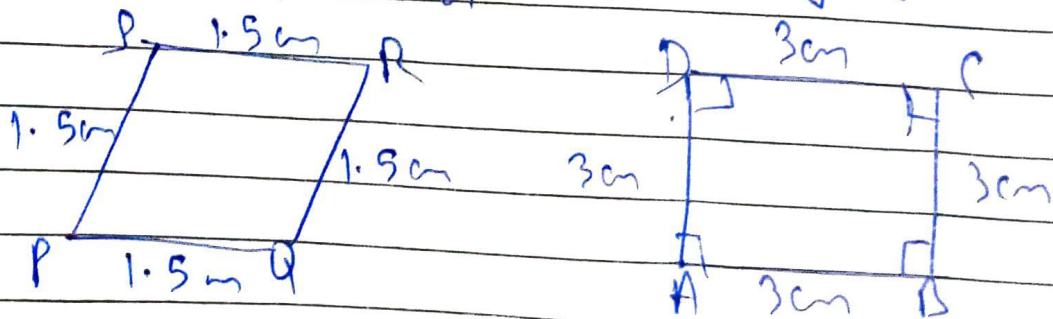 S 1.5cm R
1.5cm
1.5cm
P 1.5cm Q
D 3cm C
3cm
3cm
A 3cm B